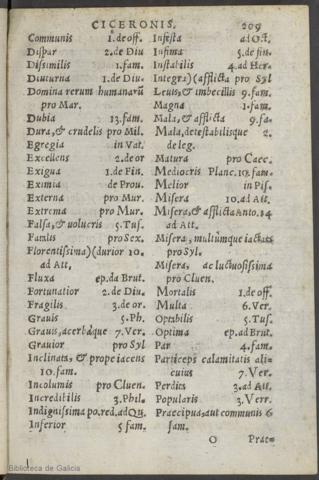 CICERONIS. 209
Communis 1. de off.
Dispar 2. de Diu
Dissimilis 1. fam.
Diuturna 1. de Diu.
Domina rerum humanarū
pro Mar.
Dubia 13. fam.
Dura, & crudelis pro Mil.
Egregia in Vat.
Excellens 2. de or
Exigua 1. de Fin.
Eximia de Prou.
Externa pro Mur.
Extrema pro Mur.
Falsa, & uolucris 5. Tus.
Familis pro Sex.
Florentissima)(durior 10.
ad Att.
Fluxa ep. da Brut.
Fortunatior 2. de Diu.
Fragilis 3. de or.
Grauis 5. Ph.
Grauis, acerbáque 7. Ver.
Grauior pro Syl
Inclinata, & prope iacens
10. fam.
Incolumis pro Cluen.
Incredibilis 3. Phil.
Indignissima po. red. ad Qu.
Inferior 5 fam.
Infesta ad Oct.
Infima 5. de fin.
Instabilis 4. ad Her.
Integra)(afflicta pro Syl
Leuis, & imbecillis 9. fam.
Magna 1. fam.
Mala, & afflicta 9. fa.
Mala, detestabilisque 2.
de leg.
Matura pro Caec.
Mediocris Planc. 10. fam.
Melior in Pis.
Misera 10. ad Att.
Misera, & afflicta Anto. 14
ad Att.
Misera, multùmque iactata
pro Syl.
Misera, ac luctuosissima
pro Cluen.
Mortalis 1. de off.
Multa 6. Ver.
Optabilis 5. Tus.
Optima ep. ad Brut.
Par 4. fam.
Particeps calamitatis ali=
cuius 7. Ver.
Perdita 3. ad Att.
Popularis 3. Verr.
Praecipua, aut communis 6
fam.
O Prae=
Biblioteca de Galicia